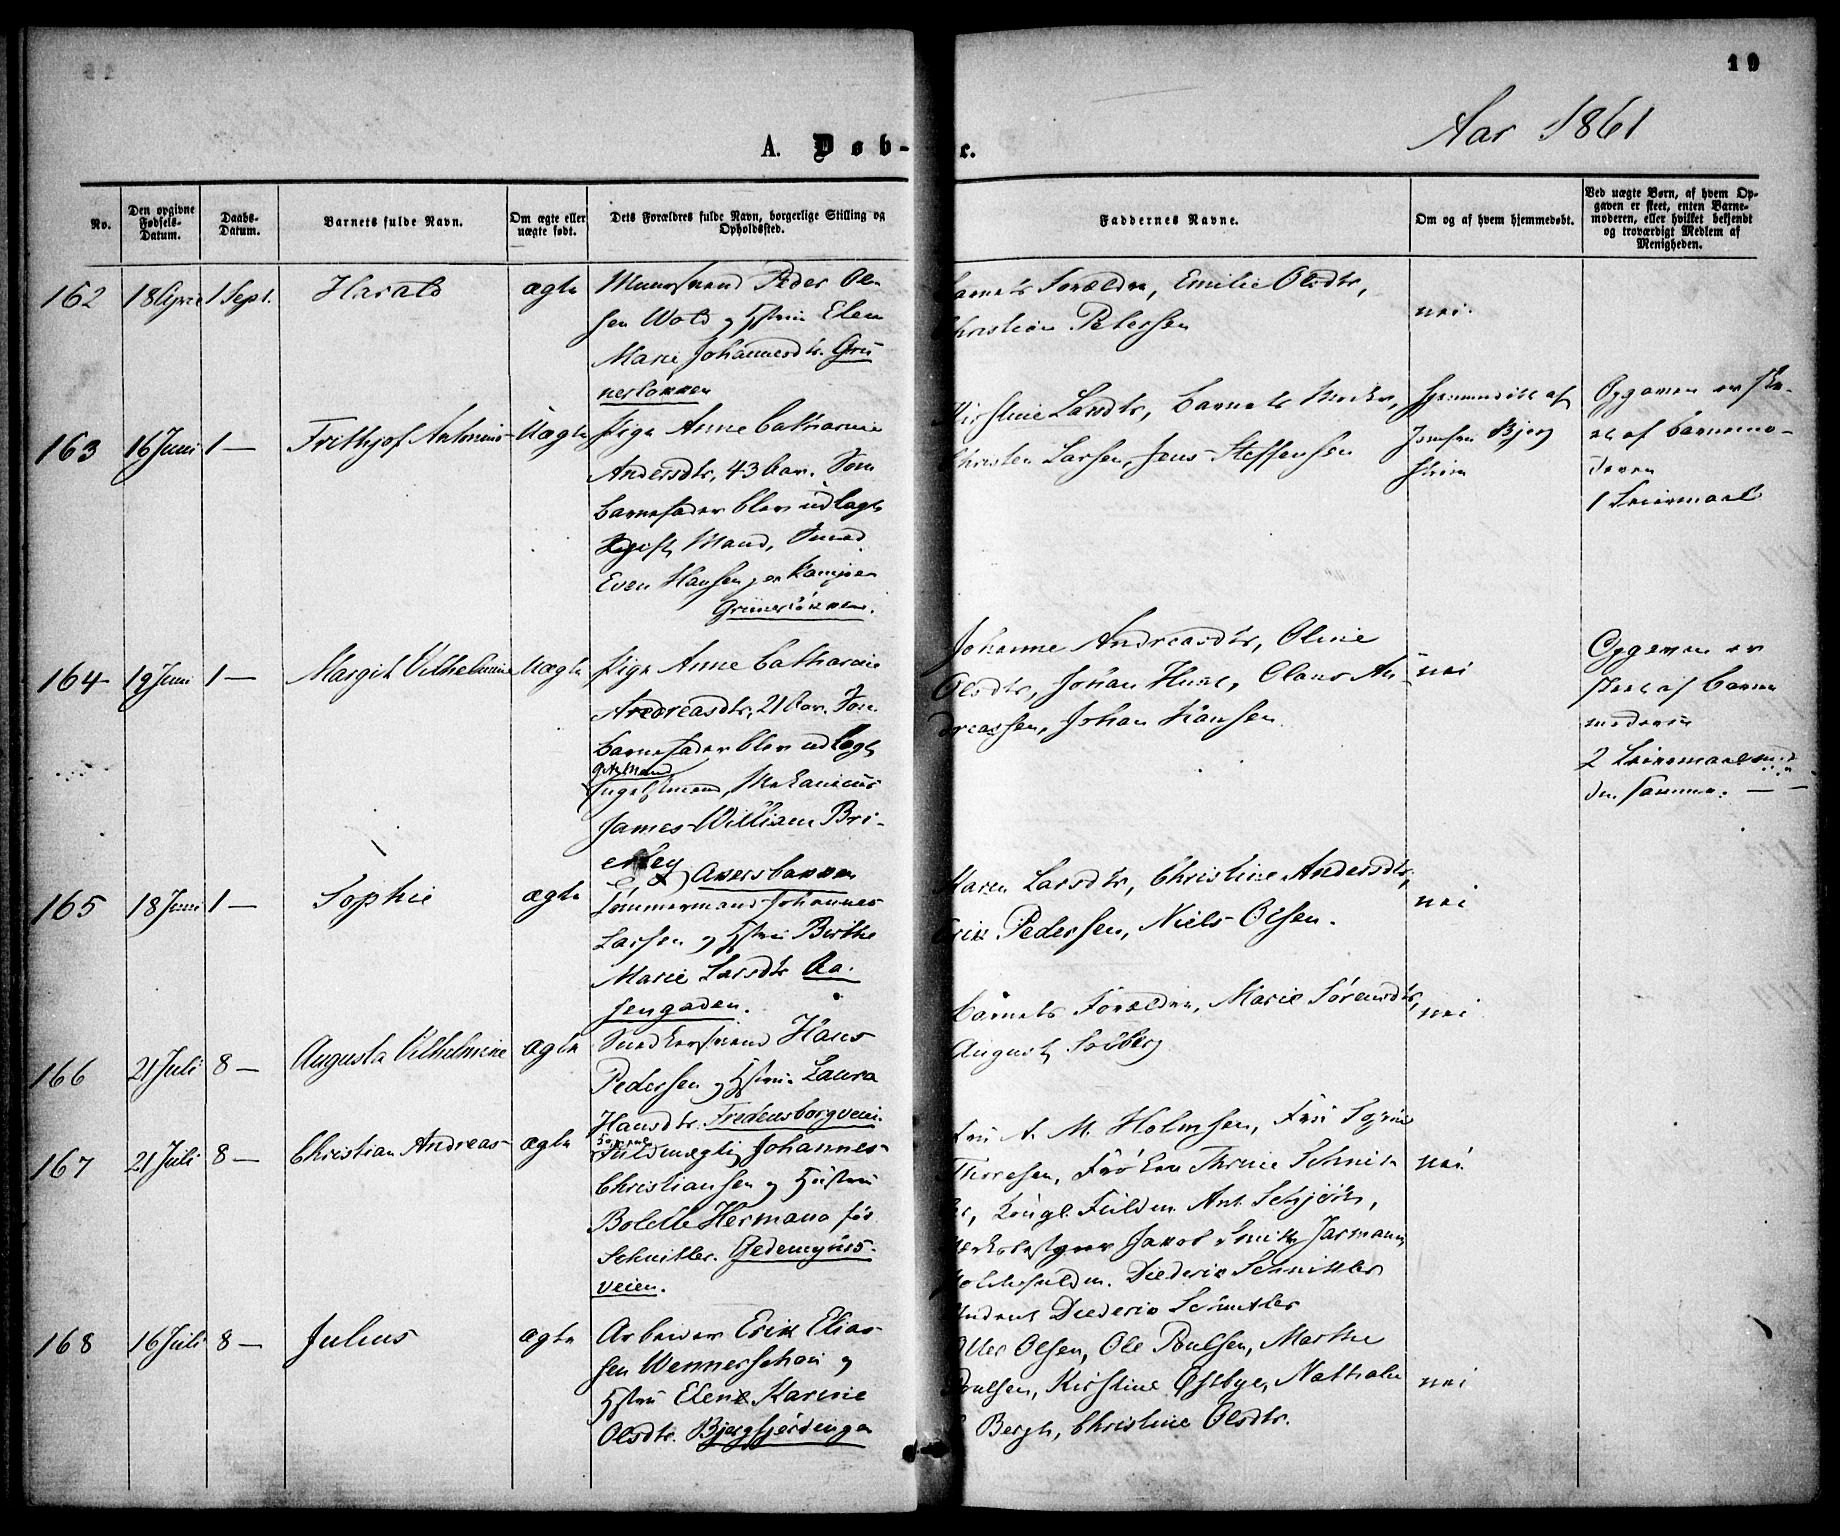 19
Aar 1861
A. Døb-
e.
No.
Den opgivne Fødsels-Datum.
Daabs-Datum.
Barnets fulde Navn.
Om ægte eller uægte født.
Dets Forældres fulde Navn, borgerlige Stilling og Opholdssted.
Faddernes Navne.
Om og af hvem hjemmedøbt.
Ved uægte Børn, af hvem Opgaven er skeet, enten Barnemoderen, eller hvilket bekjendt og troværdigt Medlem af Menigheden.
162 18 1 Sept. Harald ægte
Muurmand Peder Ol-
sen Wold og Hstru Elen
Marie Johannesdtr. Grü
nerløkken
Barnets Forældre, Emilie Olsdtr,
Christian Petersen
nei.
163 16 Juni 1 — Frithjof Antonius Uægte
Pige Anne Catharine
Andersdtr, 43 Aar. Som
barnefader blev udlagt
gift Mand, Smed
Even Hansen, Kampen
Grünerløkken.
Kirstine Larsdtr, Barnets Moder,
Christen Larsen, Jens Steffensen
Hjemmedøbt af
Jomfru Bjerg
Opgaven er ske-
et af barnemo-
deren
1 Leiermaal
164 19 Juni 1 — Margit Vilhelmine Uægte
Pige Anne Catharine
Andreasdtr, 21 Aar. Som
barnefader blev udlagt
gift Mand
Mekanicus
James William Bri-
erley, Akersbakken
Johanne Andreasdtr, Oline
Olsdtr, Johan Olaus An-
dreassen, Johan Hansen
nei
Opgaven er
skeet af barne
moderen
2 Leiermaal med
den samme. — —
165 18 Juni 1 — Sophie ægte
Tømmermand Johannes
Larsen og Hstru Birthe
Marie Larsdtr Aa-
sengaden.
Karen Larsdtr, Christine Andersdtr,
Erik Pedersen, Niels Olsen.
nei
166 21 Juli 8 — Augusta Vilhelmine ægte
Snedkersvend Hans
Pedersen og Hstru Laura
Hansdtr. Fredensborgveien
Barnets Forældre, Marie Sørensdtr,
August Solberg
nei
167 21 Juli 8 — Christian Andreas ægte
Fuldmægtig Johannes
Christiansen og Hustru
Bolette Hermana født
Schnitler. Gedemyrs-
veien.
Fru A. M. Holmsen, Fru
Thoresen, Frøken Thrine Schnit
ler, Kongl. Fuldm. Ant. Schjøth,
Jakob Smith Jarmann,
Diederik Schnitler
Student Diederik Schnitler
nei
168 16 Juli 8 — Julius ægte
Arbeider Erik Elias-
sen og
Hstru Elene Karine
Olsdtr. Bjergfjerdingen
Olsen, Ole Poulsen, Marthe
Poulsen, Kirstine Østbye, Nathalie
Bergh, Christine Olsdtr.
nei